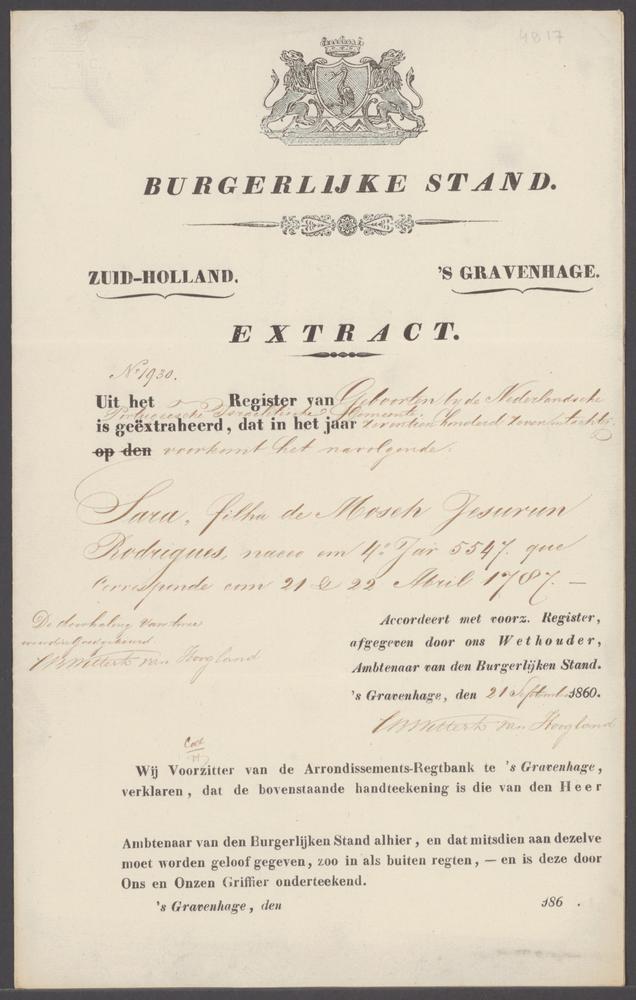 4817
BURGERLIJKE STAND.
ZUID-HOLLAND.
'S GRAVENHAGE.
EXTRACT.
No 1930.
Uit het Register van Geboorten by de Nederlandsche
Portugesche Israelitische Gemeente.
is geëxtraheerd, dat in het jaar zeventien honderd zeven en tachtig
op den voorkomt het navolgende.
Sara, filha de Moseh Jesurun
Rodrigues, naceo em 4o Jar 5547. que
Corresponde com 21 & 22 Abril 1787. —
De doorhaling van twee
woorden goedgekeurd
van Hoogland
Accordeert met voorz. Register,
afgegeven door ons Wethouder,
Ambtenaar van den Burgerlijken Stand.
's Gravenhage, den 21 September 1860.
van Hoogland
Coll
Wij Voorzitter van de Arrondissements-Regtbank te 's Gravenhage,
verklaren, dat de bovenstaande handteekening is die van den Heer
Ambtenaar van den Burgerlijken Stand alhier, en dat mitsdien aan dezelve
moet worden geloof gegeven, zoo in als buiten regten, — en is deze door
Ons en Onzen Griffier onderteekend.
's Gravenhage, den 186 .